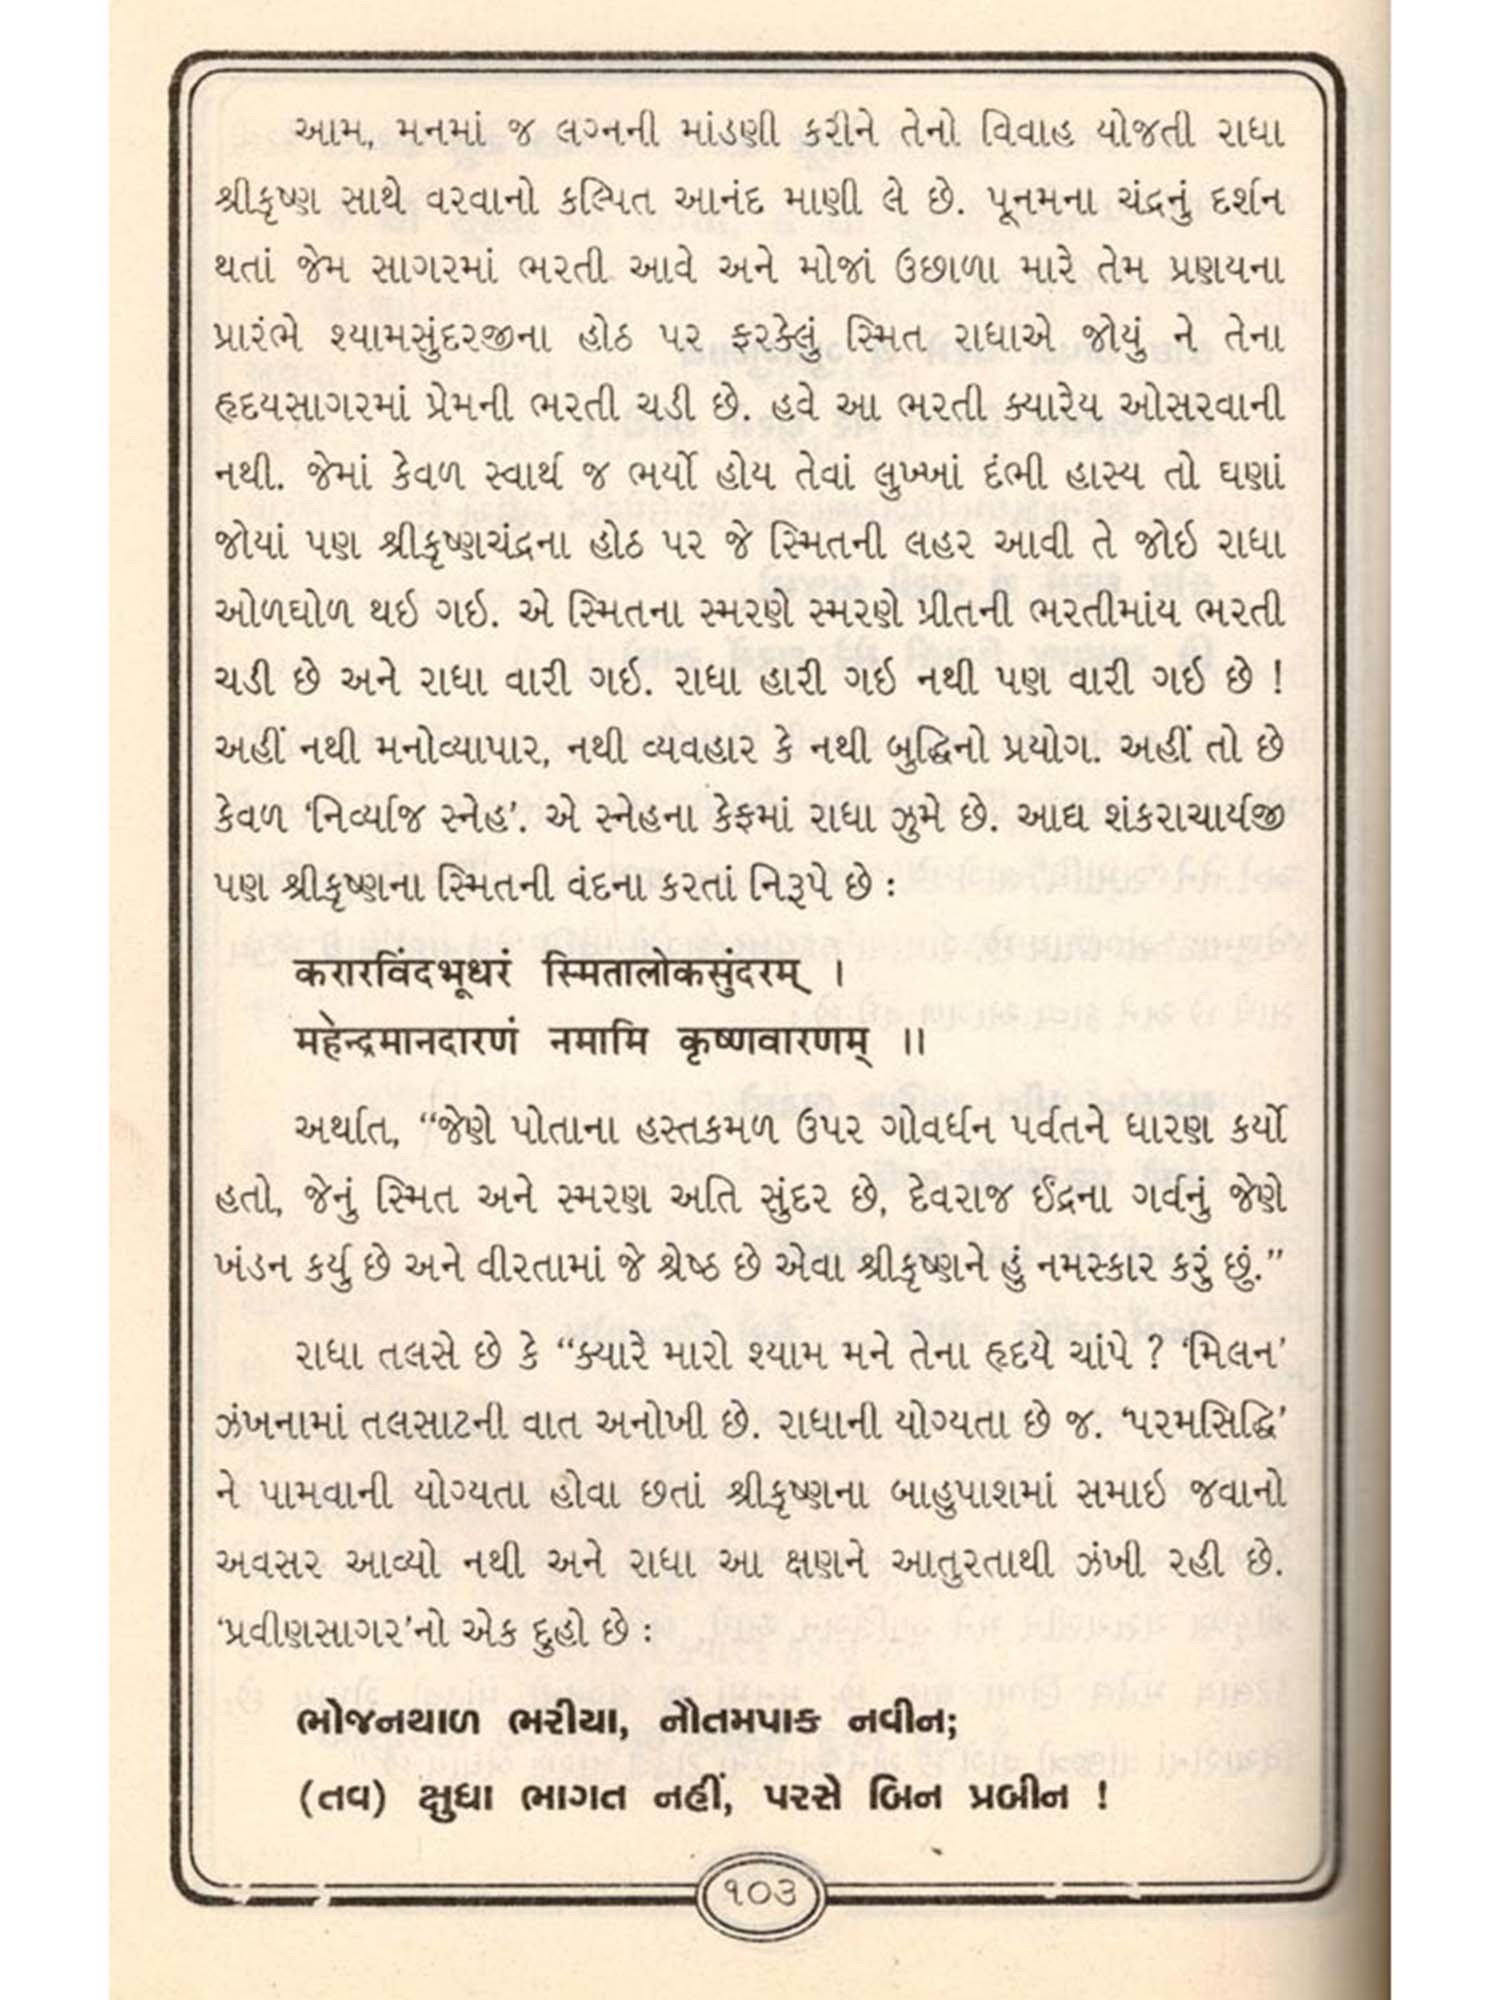 આમ, મનમાં જ લગ્નની માંડણી કરીને તેનો વિવાહ યોજતી રાધા
શ્રીકૃષ્ણ સાથે વરવાનો કલ્પિત આનંદ માણી લે છે. પૂનમના ચંદ્રનું દર્શન
થતાં જેમ સાગરમાં ભરતી આવે અને મોજાં ઉછાળા મારે તેમ પ્રણયના
પ્રારંભે શ્યામસુંદરજીના હોઠ પર ફરકેલું સ્મિત રાધાએ જોયું ને તેના
હૃદયસાગરમાં પ્રેમની ભરતી ચડી છે. હવે આ ભરતી ક્યારેય ઓસરવાની
નથી. જેમાં કેવળ સ્વાર્થ જ ભર્યો હોય તેવાં લુખ્ખાં દંભી હાસ્ય તો ઘણાં
જોયાં પણ શ્રીકૃષ્ણચંદ્રના હોઠ પર જે સ્મિતની લહર આવી તે જોઇ રાધા
ઓળઘોળ થઇ ગઇ. એ સ્મિતના સ્મરણે સ્મરણે પ્રીતની ભરતીમાંય ભરતી
ચડી છે અને રાધા વારી ગઇ. રાધા હારી ગઇ નથી પણ વારી ગઇ છે !
અહીં નથી મનોવ્યાપાર, નથી વ્યવહાર કે નથી બુદ્ધિનો પ્રયોગ. અહીં તો છે
કેવળ ‘નિર્વ્યાજ સ્નેહ’. એ સ્નેહના કેફમાં રાધા ઝુમે છે. આદ્ય શંકરાચાર્યજી
પણ શ્રીકૃષ્ણના સ્મિતની વંદના કરતાં નિરૂપે છે :
करारविंदभूधरं स्मितालोकसुंदरम् ।
महेन्द्रमानदारणं नमामि कृष्णवारणम् ।।
અર્થાત, “જેણે પોતાના હસ્તકમળ ઉપર ગોવર્ધન પર્વતને ધારણ કર્યો
હતો, જેનું સ્મિત અને સ્મરણ અતિ સુંદર છે, દેવરાજ ઈંદ્રના ગર્વનું જેણે
ખંડન કર્યુ છે અને વીરતામાં જે શ્રેષ્ઠ છે એવા શ્રીકૃષ્ણને હું નમસ્કાર કરું છું.”
રાધા તલસે છે કે “ક્યારે મારો શ્યામ મને તેના હૃદયે ચાંપે ? ‘મિલન’
ઝંખનામાં તલસાટની વાત અનોખી છે. રાધાની યોગ્યતા છે જ. ‘પરમસિદ્ધિ’
ને પામવાની યોગ્યતા હોવા છતાં શ્રીકૃષ્ણના બાહુપાશમાં સમાઇ જવાનો
અવસર આવ્યો નથી અને રાધા આ ક્ષણને આતુરતાથી ઝંખી રહી છે.
‘પ્રવીણસાગર’નો એક દુહો છે :
ભોજનથાળ ભરીયા, નૌતમપાક નવીન;
(તવ) ક્ષુધા ભાગત નહીં, પરસે બિન પ્રબીન !
૧૦૩